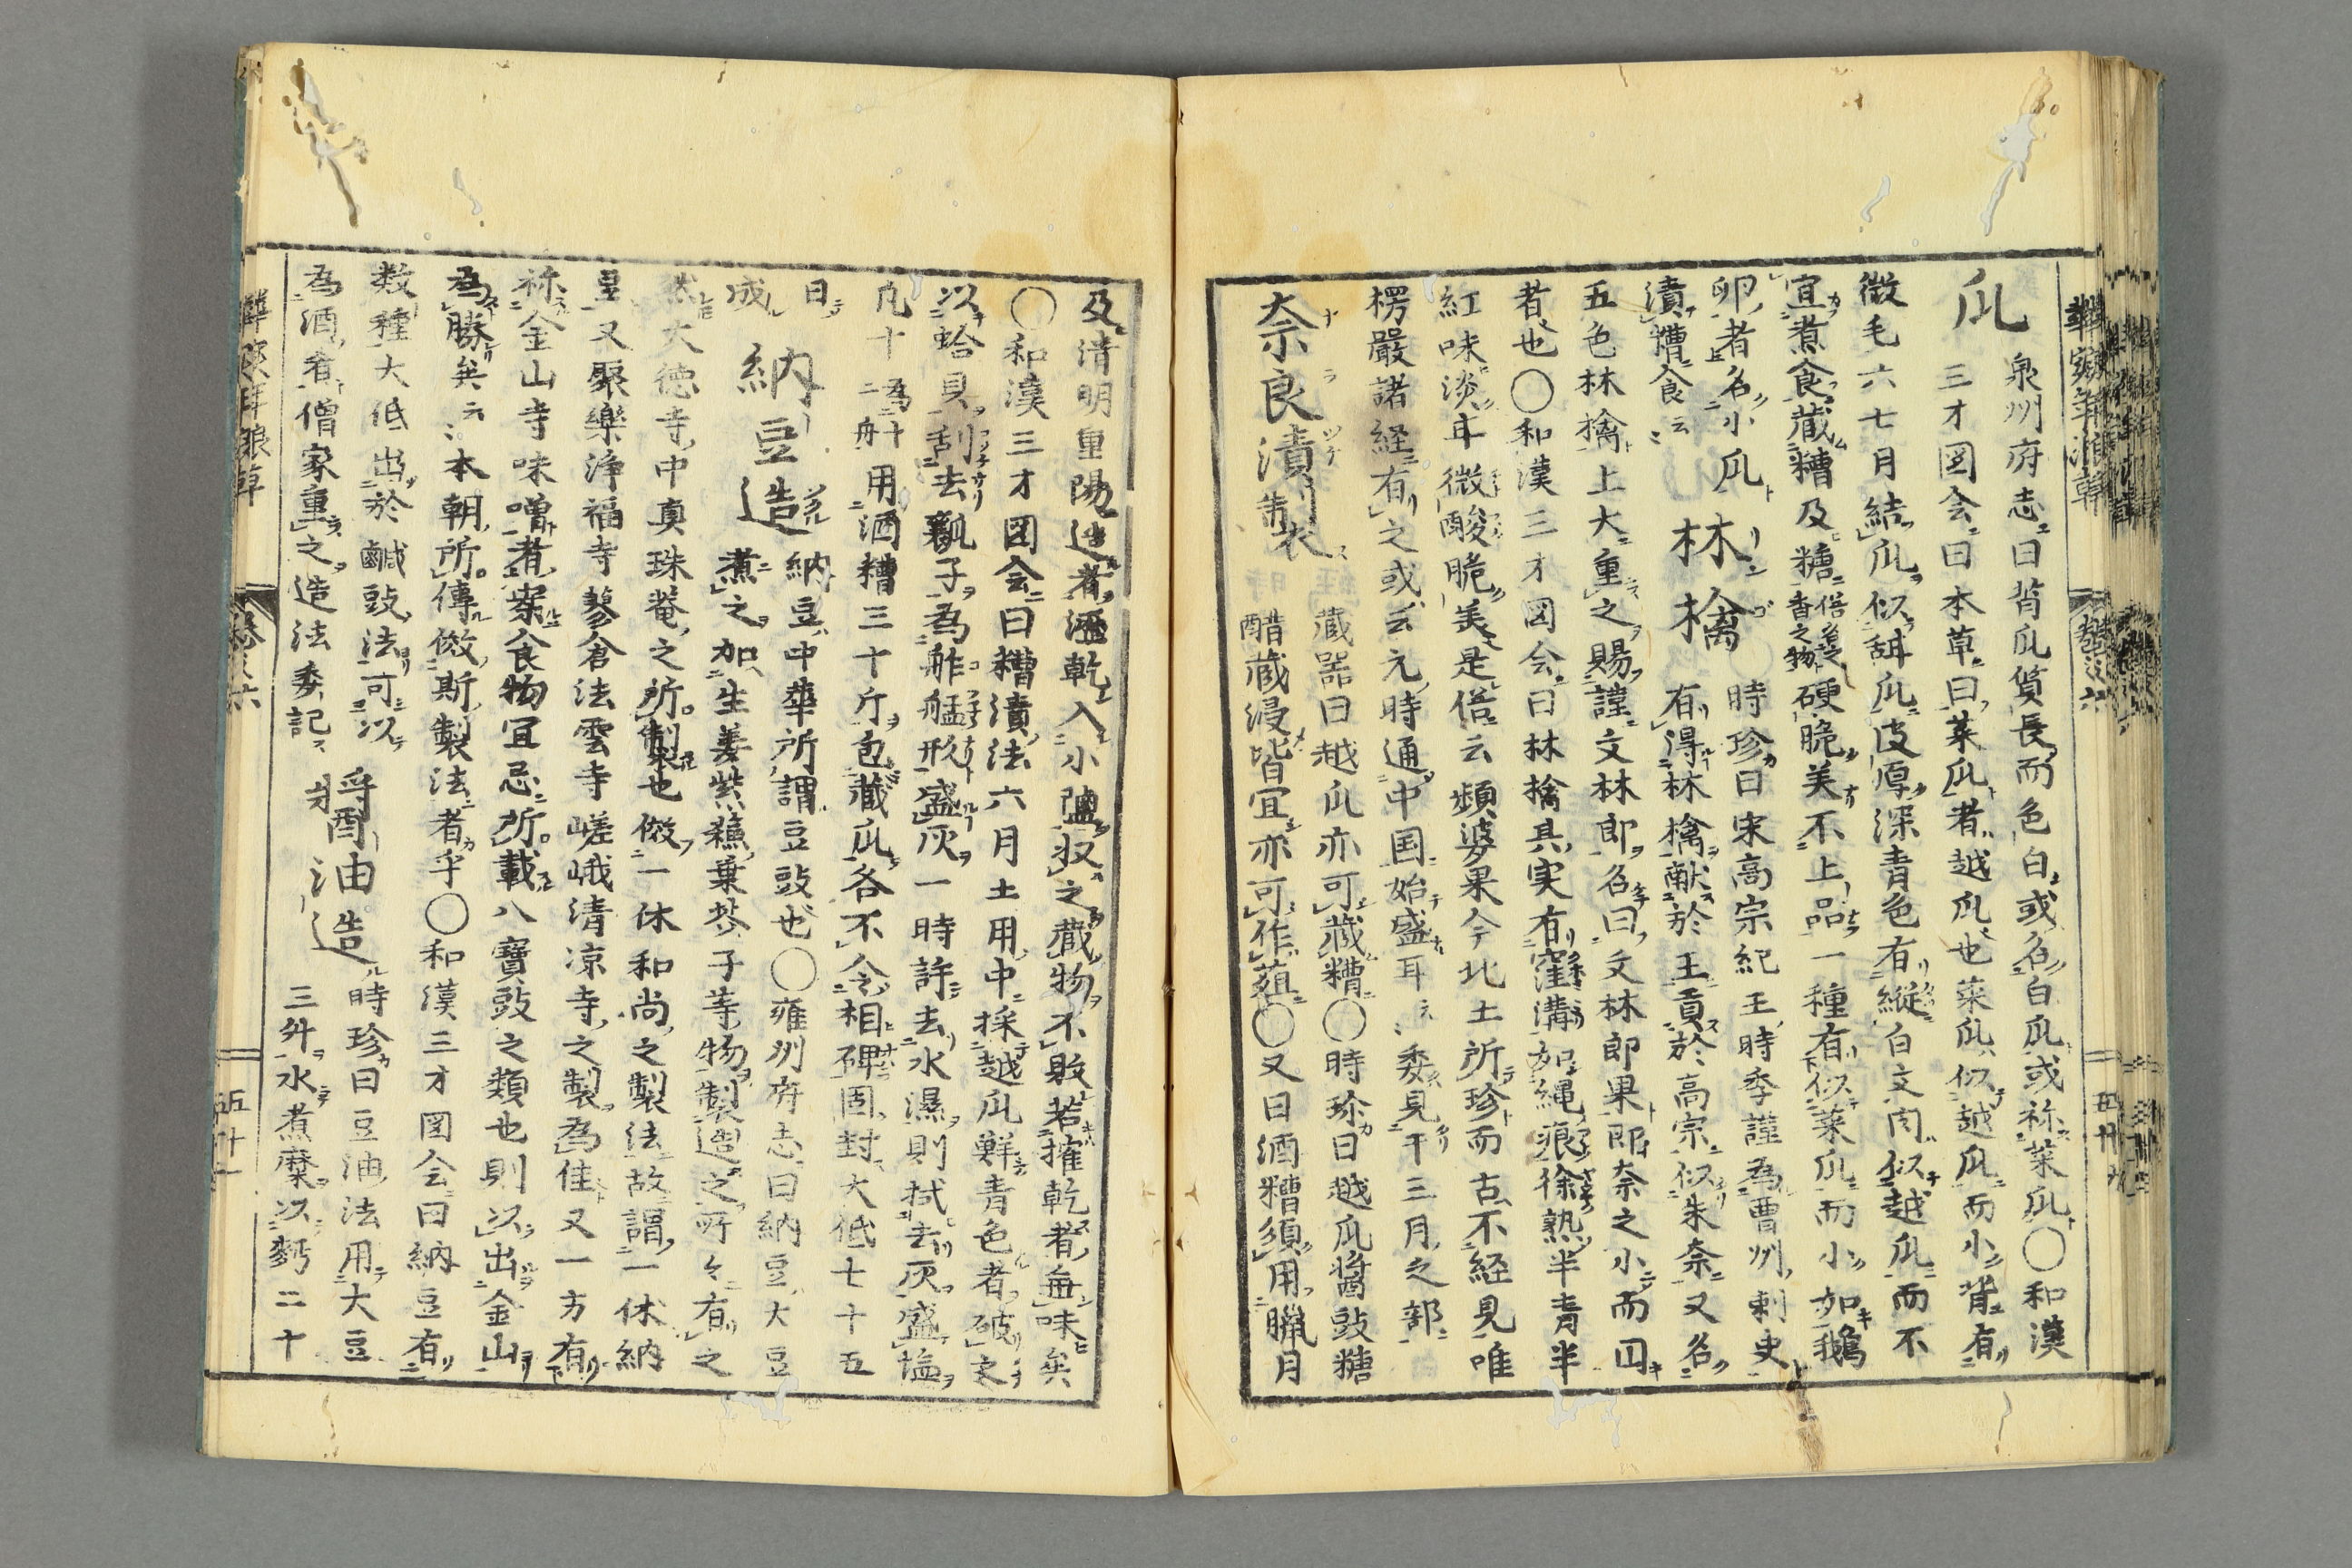 瓜
泉州府志曰背瓜質長而色白或名白瓜或称菜瓜〇和漢
三才図会曰本草曰菜瓜者越瓜也菜瓜似越瓜而小背有
微毛六七月結瓜似瓝瓜皮厚深青色有縦白文肉似越瓜而不
宜煮食藏糟及糖硬脆美不上品一種有似菜瓜而小如鵝
卵者名小瓜
漬糟食云
林檎
時珍曰宋高宗紀王時季謹為曹州刺史
有得林檎献於王貢於高宗似朱柰又名
五色林檎上大重之賜謹文林郎名曰文林郎果即柰之小而円
者也〇和漢三才図会曰林檎其実有窪溝如縄痕徐熟半青半
紅味淡耳微酸脆美是倍云頻婆果今北土所珍而古不経見唯
楞嚴諸経有之或云元時通中国始盛耳云委見干三月之部
奈良漬製
藏器曰越瓜亦可藏糟〇時珍曰越瓜醬豉糖
醋藏浸皆宜亦可作葅〇又曰酒糟須用臘月
及清明重陽造者瀝乾入小塩收之藏物不敗若搉乾者無味矣
〇和漢三才図会曰糟漬法六月土用中採越瓜鮮青色者破之
以蛤貝刮去瓤子為舴艋形盛灰一時許去水濕則拭去灰盛塩
凡十為十二舟用酒糟三十斤包藏瓜各不令相碑固封大低七十五
日
成
納豆造
納豆中華所謂豆豉也〇雍州府志曰納豆大豆
煮之加生姜紫蘓藁芥子等物製造之所々有之
然大德寺中真珠菴之所製也倣一休和尚之製法故謂一休納
豆又聚樂浄福寺蓼倉法雲寺嵯峨清涼寺之製為佳又一方有
称金山寺味噌者案食物冝忌所載八寶豉之類也則以出金山
為勝矣云本朝所傳倣斯製法者乎〇和漢三才図会曰納豆有
数種大低出於鹹豉法可以
為酒肴僧家重之造法委記
醤油造
時珍曰豆油法用大豆
三舛水煮糜以麪二十